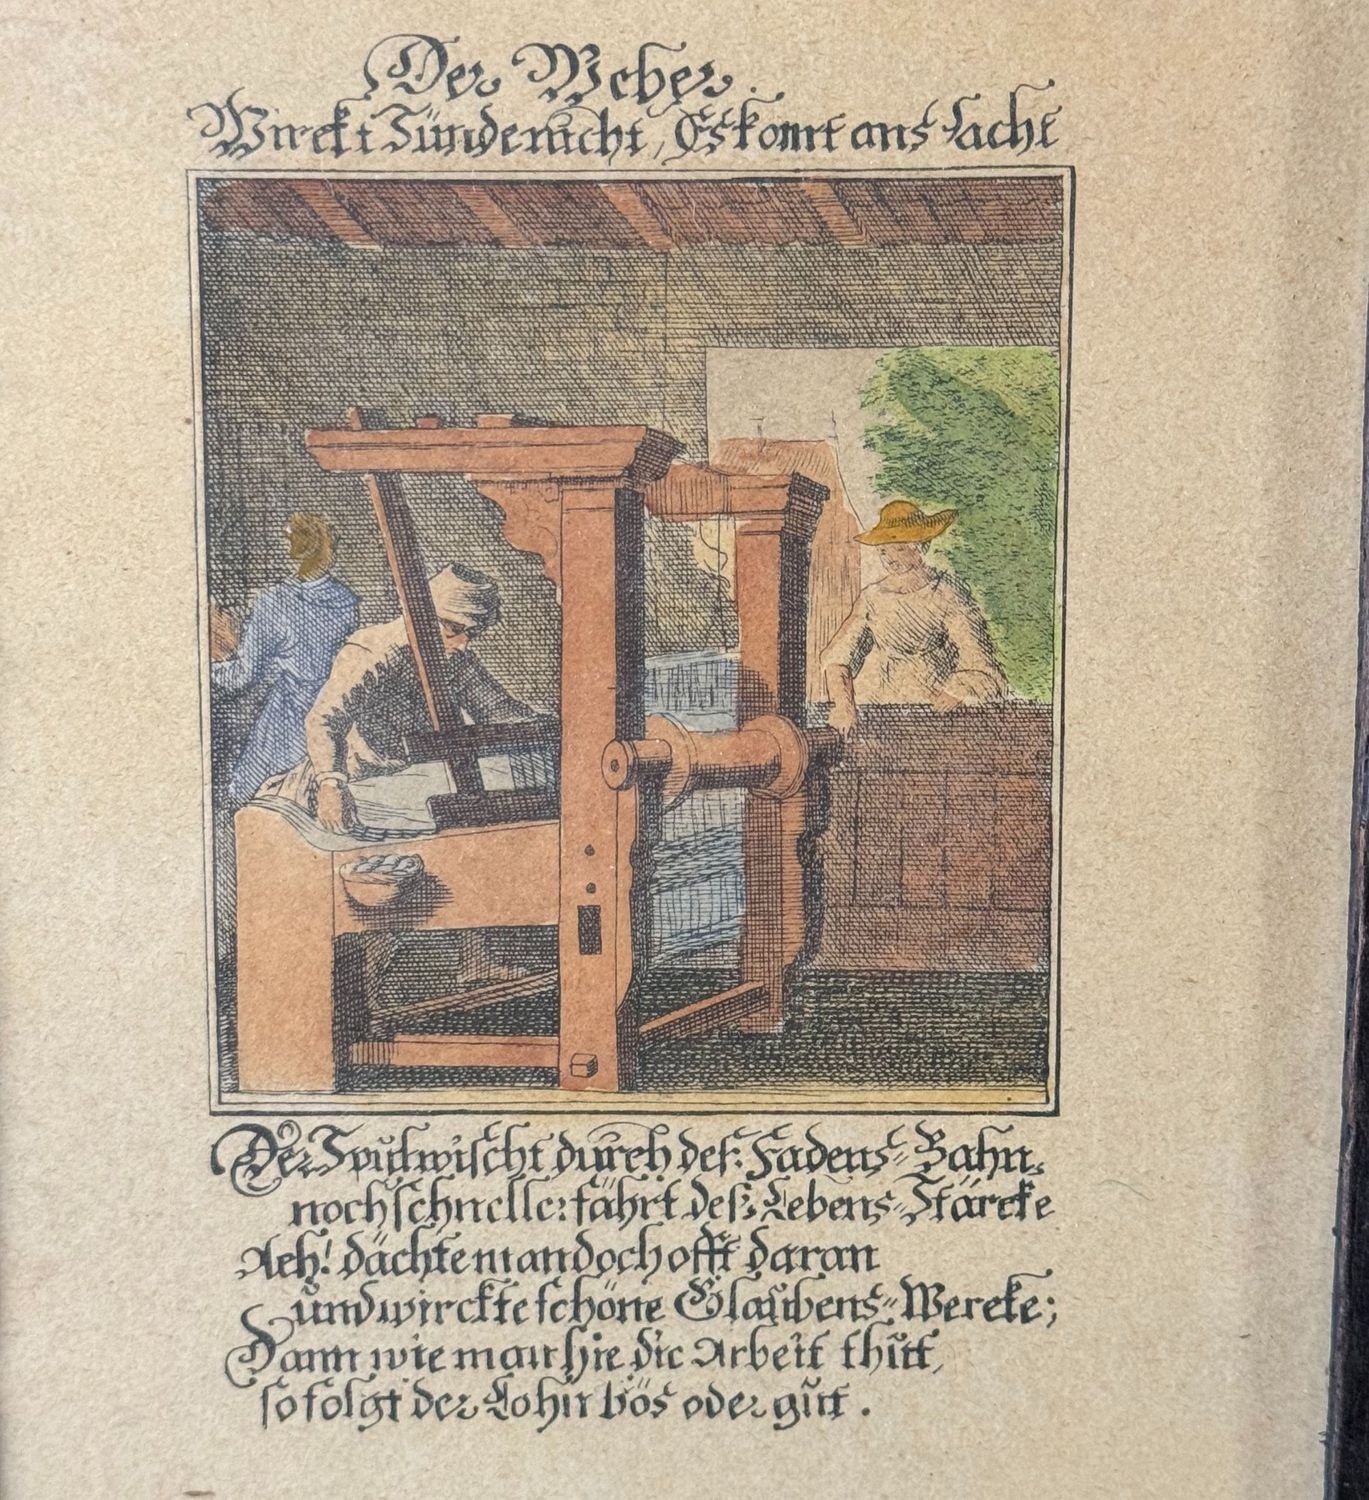 Der Weber.
Wirckt Sünde nicht, Es kom̄t ans Licht
Der Spul wischt durch deß Fadens-Bahn,
noch schneller fährt deß Lebens-Stärcke
Ach! dächte man doch offt daran
und wirckte schöne Glaubens-Wercke;
Dann wie man hie die Arbeit thut,
so folgt der Lohn bös oder gut.